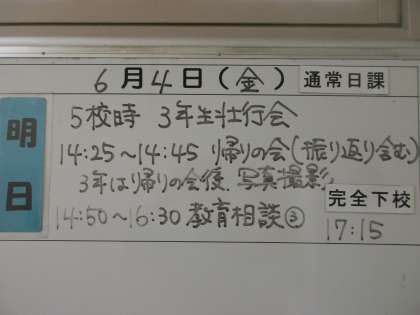 6月4日(金) 通常日課
明日
5校時 3年生壮行会
14:25〜14:45 帰りの会(振り返り含む)
3年は帰りの会後、写真撮影
14:50〜16:30 教育相談③
完全下校
17:15